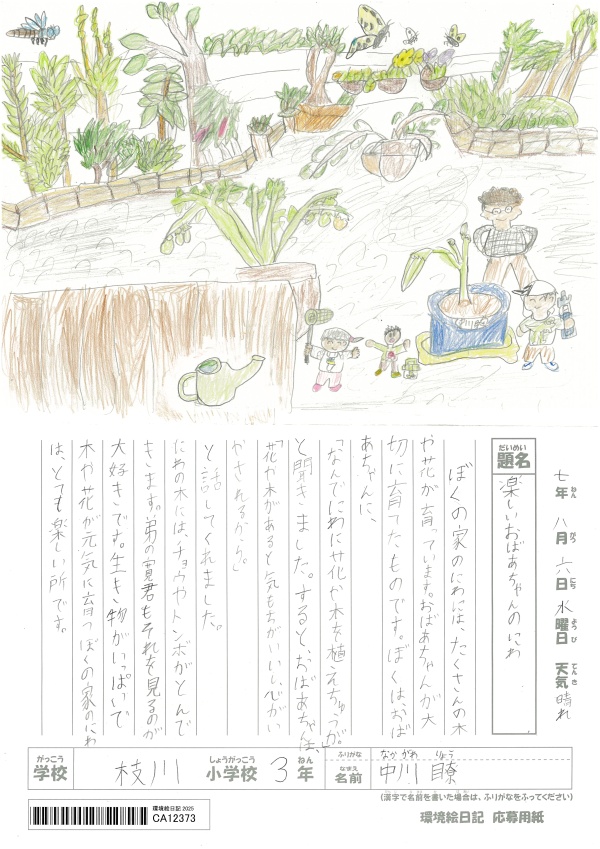 七年 八月 六日 水曜日 天気 晴れ
ねん がつ にち ようび てんき
だいめい
題名
楽しいおばあちゃんのにわ
ぼくの家のにわには、たくさんの木
や花が育っています。おばあちゃんが大
切に育てたものです。ぼくは、おば
あちゃんに、
「なんでにわに花や木を植えちゅうが。」
と聞きました。すると、おばあちゃんは、
「花や木があると気もちがいいし、心がい
やされるから。」
と話してくれました。
にわの木には、チョウやトンボがとんで
きます。弟の寛君もそれを見るのが
大好きです。生き物がいっぱいで
木や花が元気に育つぼくの家のにわ
は、とても楽しい所です。
がっこう
学校
枝川
しょうがっこう
小学校
3
ねん
年
ふりがな
なかがわ りょう
なまえ
名前
中川 瞭
(漢字で名前を書いた場合は、ふりがなをふってください)
環境絵日記 2025
CA12373
環境絵日記 応募用紙